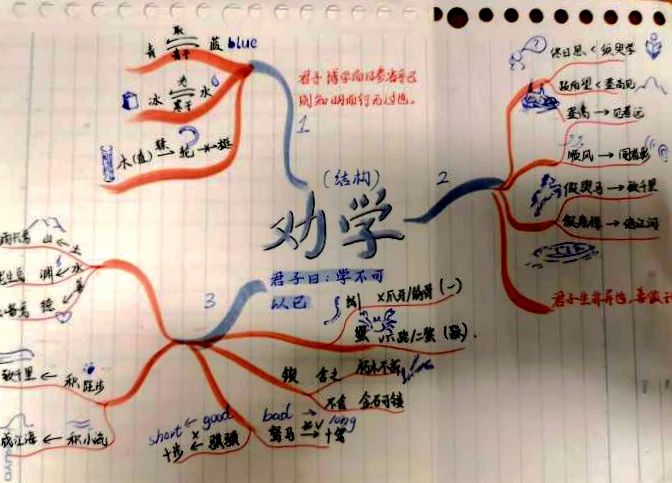 取
青 蓝 blue
青于
为
冰 水
寒于
木(直) → 轮 → 挺
君子博学而日参省乎己
则知明而行无过也。
1
(结构)
劝学
君子曰:学不可
以已
2
终日思 < 须臾学
跂而望 < 登高见
登高 → 见者远
顺风 → 闻者彰
假舆马 → 致千里
假舟楫 → 绝江河
君子生非异也,善假于
3
山 ← 土
渊 ← 水
德
致千里 ← 积跬步
成江海 ← 积小流
short ← good
十步 ← 骐骥
bad → long
驽马 → 十驾
锲 舍之 朽木不折
不舍 金石可镂
×爪牙/筋骨 (一)
蟹 六跪/二螯 (躁)